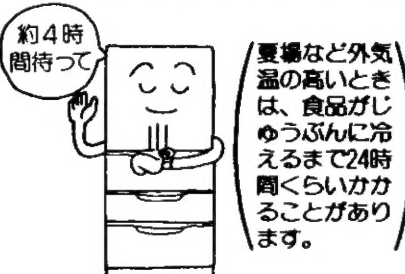 約4時
間待って
夏場など外気
温の高いとき
は、食品がじ
ゅうぶんに冷
えるまで24時
間くらいかか
ることがあり
ます。